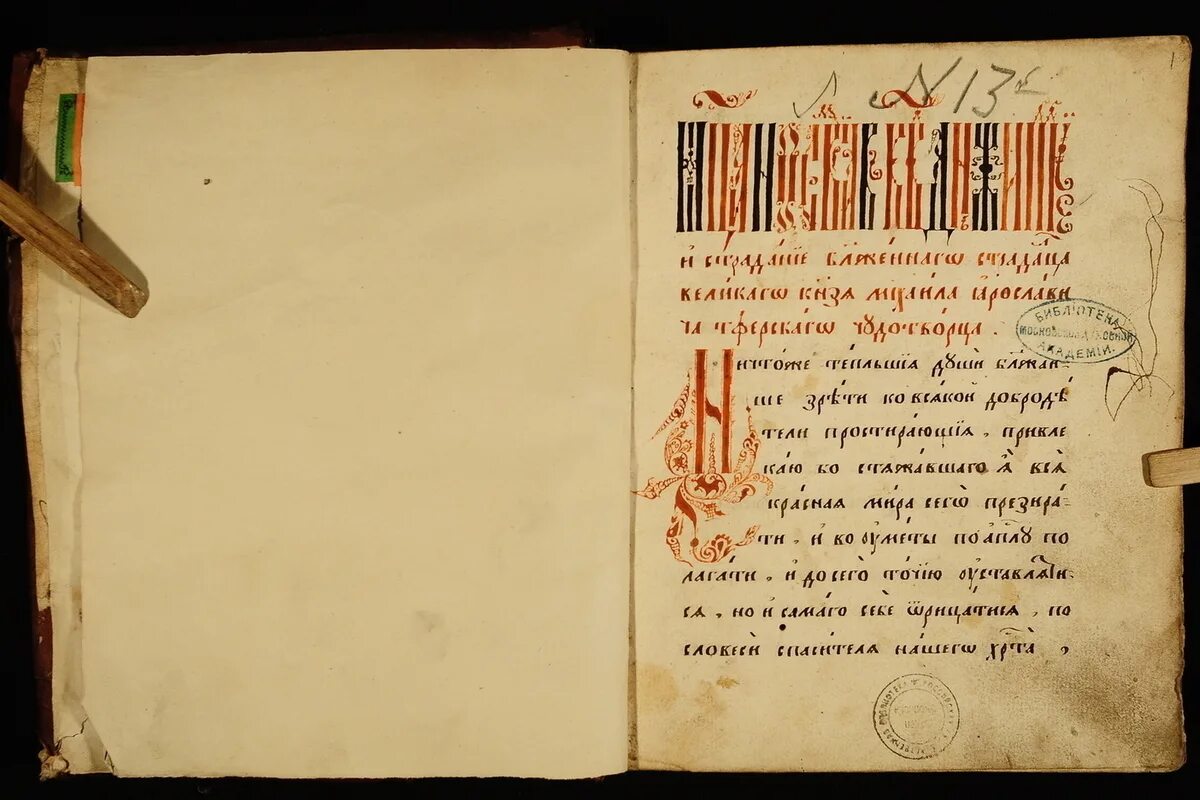 № 13й
1
И страданїе бл҃женнагѡ страдал҆ца
великагѡ кн҃зя михаила ꙗрослави
ча тферскагѡ чюдотворца .
Ничтоже теплѣишїѧ души бл҃жаи
ше зрѣти ко всѧкой добродѣ
тели простирающїѧ , привле
каю бо стѧжавшаго ѧ҆ всѧ
краснаѧ мира сегѡ презира
ти , и во оуметы по ап҃лу по
лагати , и до сего точїю оуставлѧти
сѧ , но и самаго себе ѿрицатисѧ , по
словеси спасителѧ нашегѡ хр҃та ,
БИБЛІОТЕКА
МОСКОВСКОЙ ДУХОВНОЙ
АКАДЕМІИ.